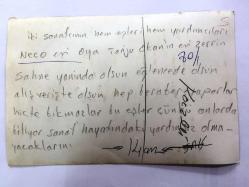 5
iki sanatçının hem eşleri hem yardımcıları
Neco eşi Oya Tanju Okanın eşi Zerrin
80/1
Sahne yanında olsun eğlencede olsun
alış verişte olsun hep beraber yaparlar
hiçte bıkmazlar bu eşler çünkü onlarda
biliyor sanat hayatındaki yardımcı olma-
yacaklarını